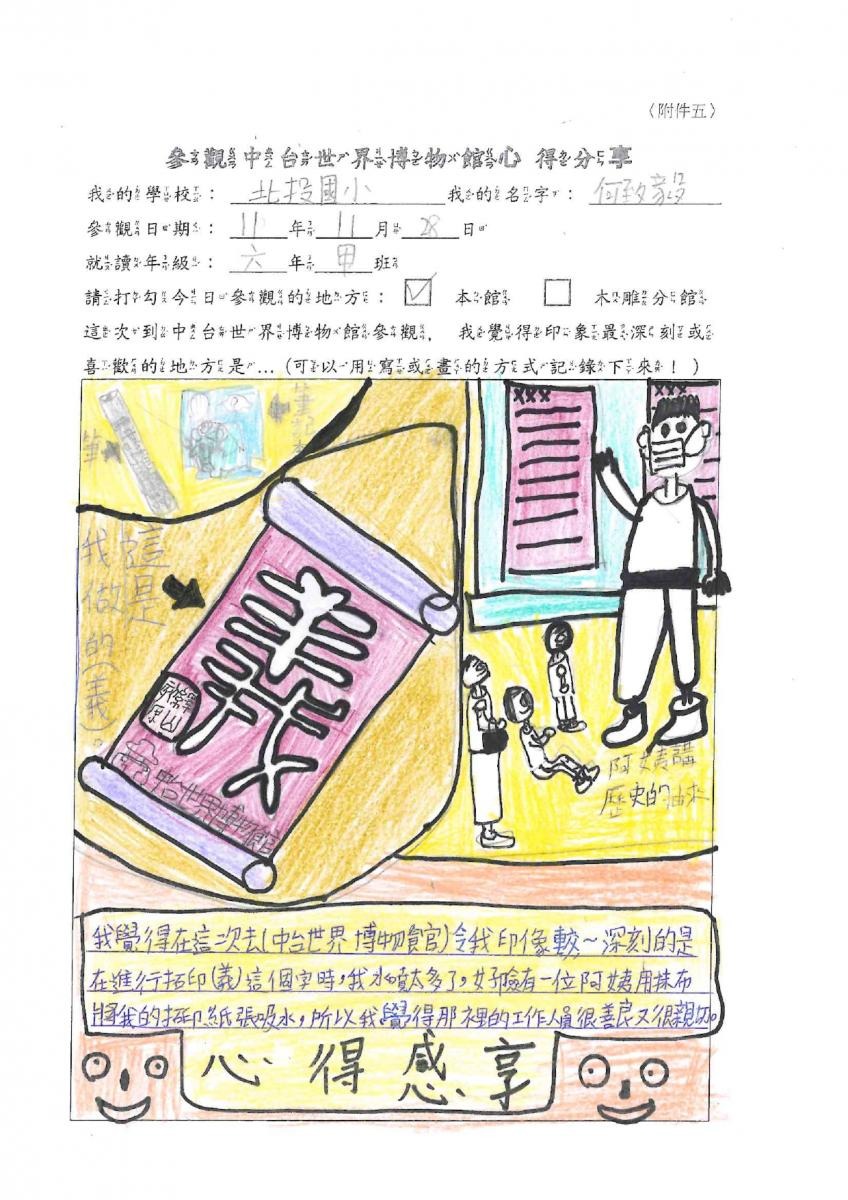 〈附件五〉
參觀中台世界博物館心得分享
我的學校：北投國小 我的名字：何致
參觀日期：111年11月28日
就讀年級：六年甲班
請打勾今日參觀的地方：☑本館 □木雕分館
這次到中台世界博物館參觀，我覺得印象最深刻或
喜歡的地方是…（可以用寫或畫的方式記錄下來！）
筆
筆記本
XXX
XXX
這是
我做
的(義)。
義
中台世界博物館
阿姨講
歷史的由來
我覺得在這次去(中台世界博物館)令我印像較～深刻的是
在進行拓印(義)這個字時，我水噴太多了，好險有一位阿姨用抹布
將我的拓印紙張吸水，所以我覺得那裡的工作人員很善良又很親切。
心得感享